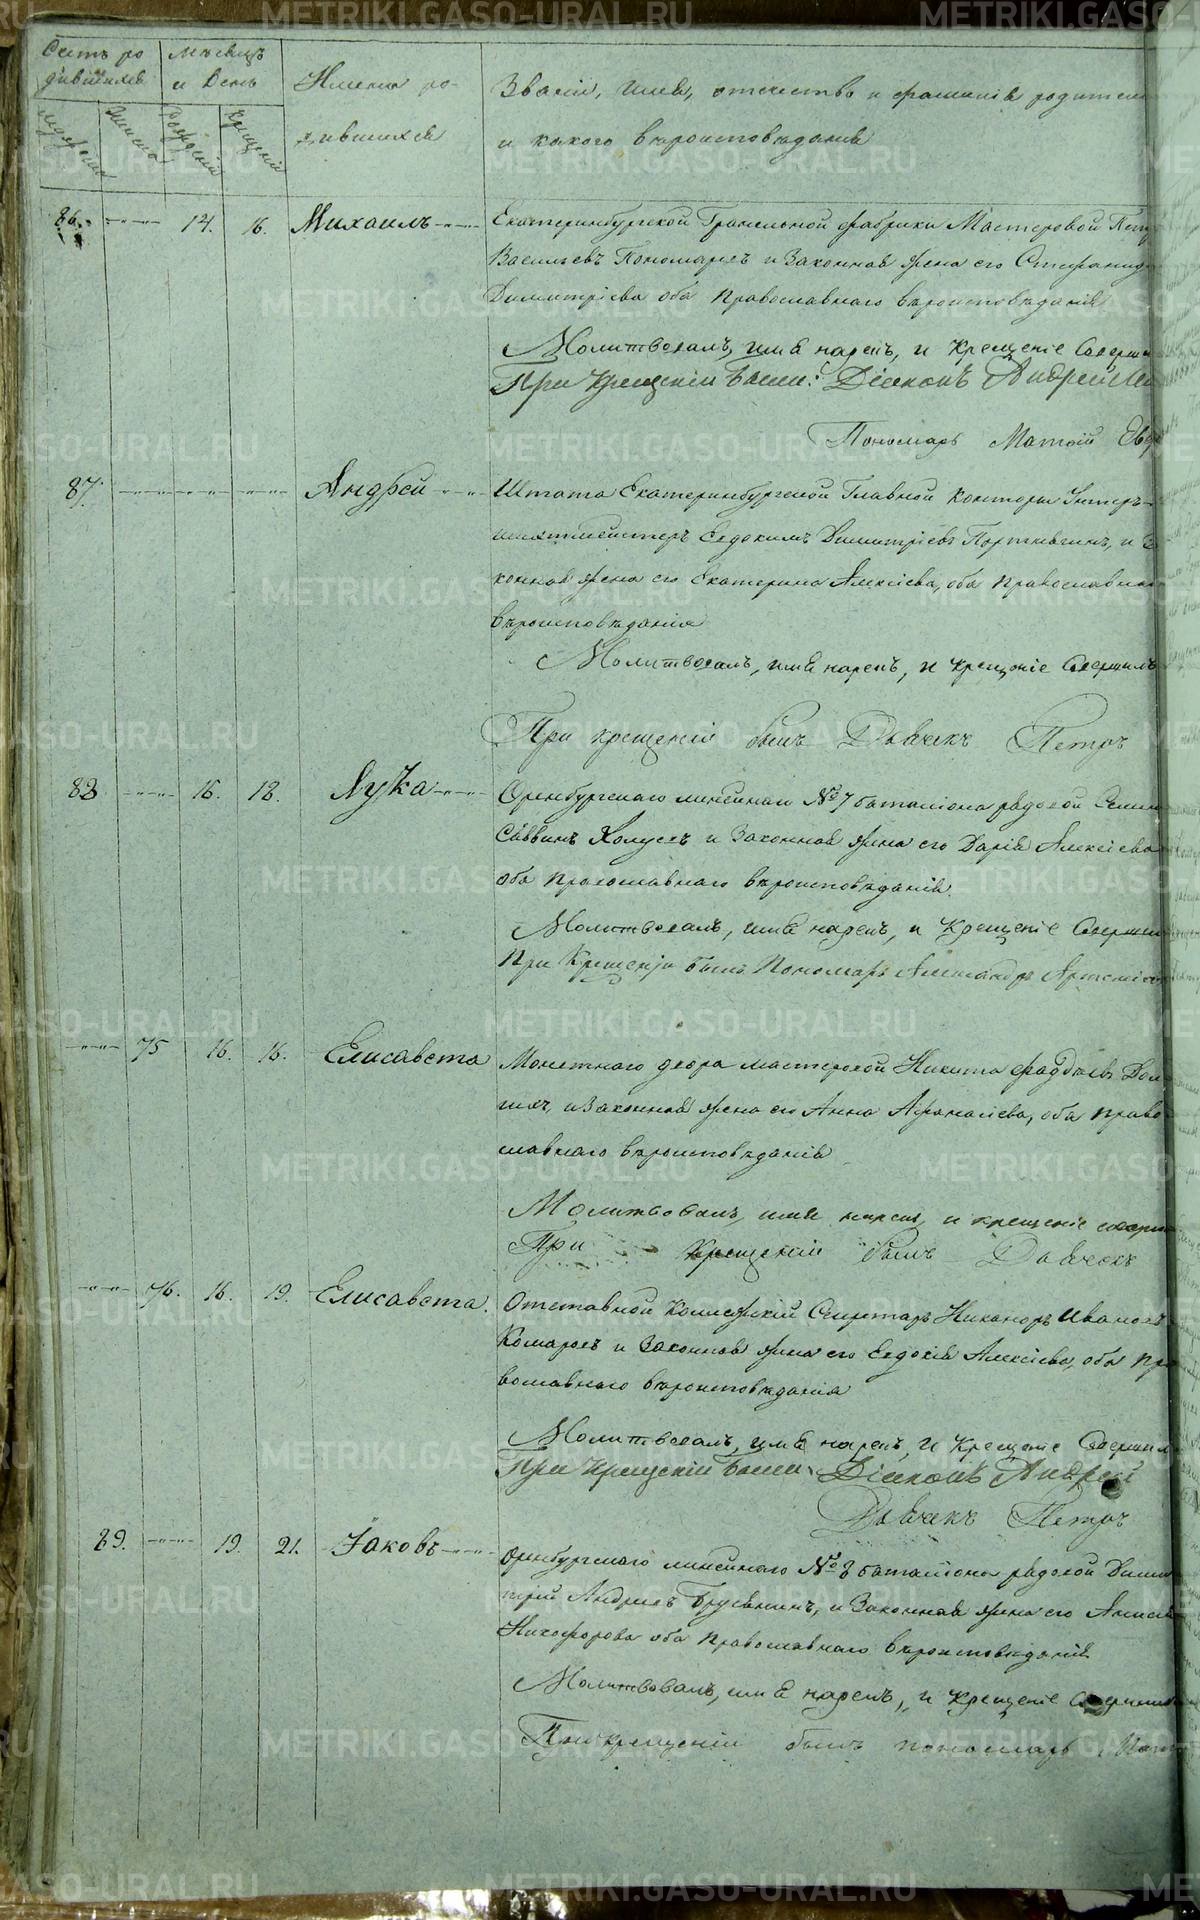 Счетъ ро
дившихся
Мѣсяцъ
и День
Имена ро-
дившихся
Званіе, имя, отчество и фамилія родителей
и какого вѣроисповѣданія
мужеска
женска
Рожденія
Крещенія
86. 14. 16. Михаилъ Екатеринбургской Гранильной фабрики Мастеровой Петръ
Васильевъ Пономаревъ и Законная жена его Стефанида
Димитріева оба православнаго вѣроисповѣданія
Молитвовалъ, имя нарекъ, и Крещеніе Соверши
При Крещеніи были: Діаконъ Андрей
Пономарь Матѳій
87. Андрей Штата Екатеринбургской Главной Конторы Унтеръ-
шихтмейстеръ Евдокимъ Димитріевъ и За
конная жена его Екатерина Алексіева, оба православнаго
вѣроисповѣданія
Молитвовалъ, имя нарекъ, и крещеніе Совершилъ
При крещеніи былъ Дьячекъ Петръ
88 16. 18. Лука Оренбургскаго линейнаго №7 баталіона рядовой
Саввинъ и Законная жена его Дарія Алексіева
оба православнаго вѣроисповѣданія.
Молитвовалъ, имя нарекъ, и Крещеніе Соверши
При Крещеніи былъ Пономарь Александръ
75 16. 16. Елисавета Монетнаго двора мастеровой Никита Фаддѣевъ
и Законная жена его Анна Аѳанасіева, оба право
славнаго вѣроисповѣданія
Молитвовалъ, имя нарекъ, и крещеніе соверши
При Крещеніи былъ Дьячекъ
76. 16. 19. Елисавета. Отставной Коллежскій Секретарь Никаноръ Ивановъ
Комаровъ и Законная жена его Евдокія Алексіева, оба пра
вославнаго вѣроисповѣданія
Молитвовалъ, имя нарекъ, и Крещеніе Совершил
При Крещеніи были Діаконъ Андрей
Дьячекъ Петръ
89. 19. 21. Іаковъ Оренбургскаго линейнаго №8 баталіона рядовой Дими
трій Андреевъ и Законная жена его
Никифорова оба православнаго вѣроисповѣданія
Молитвовалъ, имя нарекъ, и Крещеніе Соверши
При крещеніи былъ пономарь